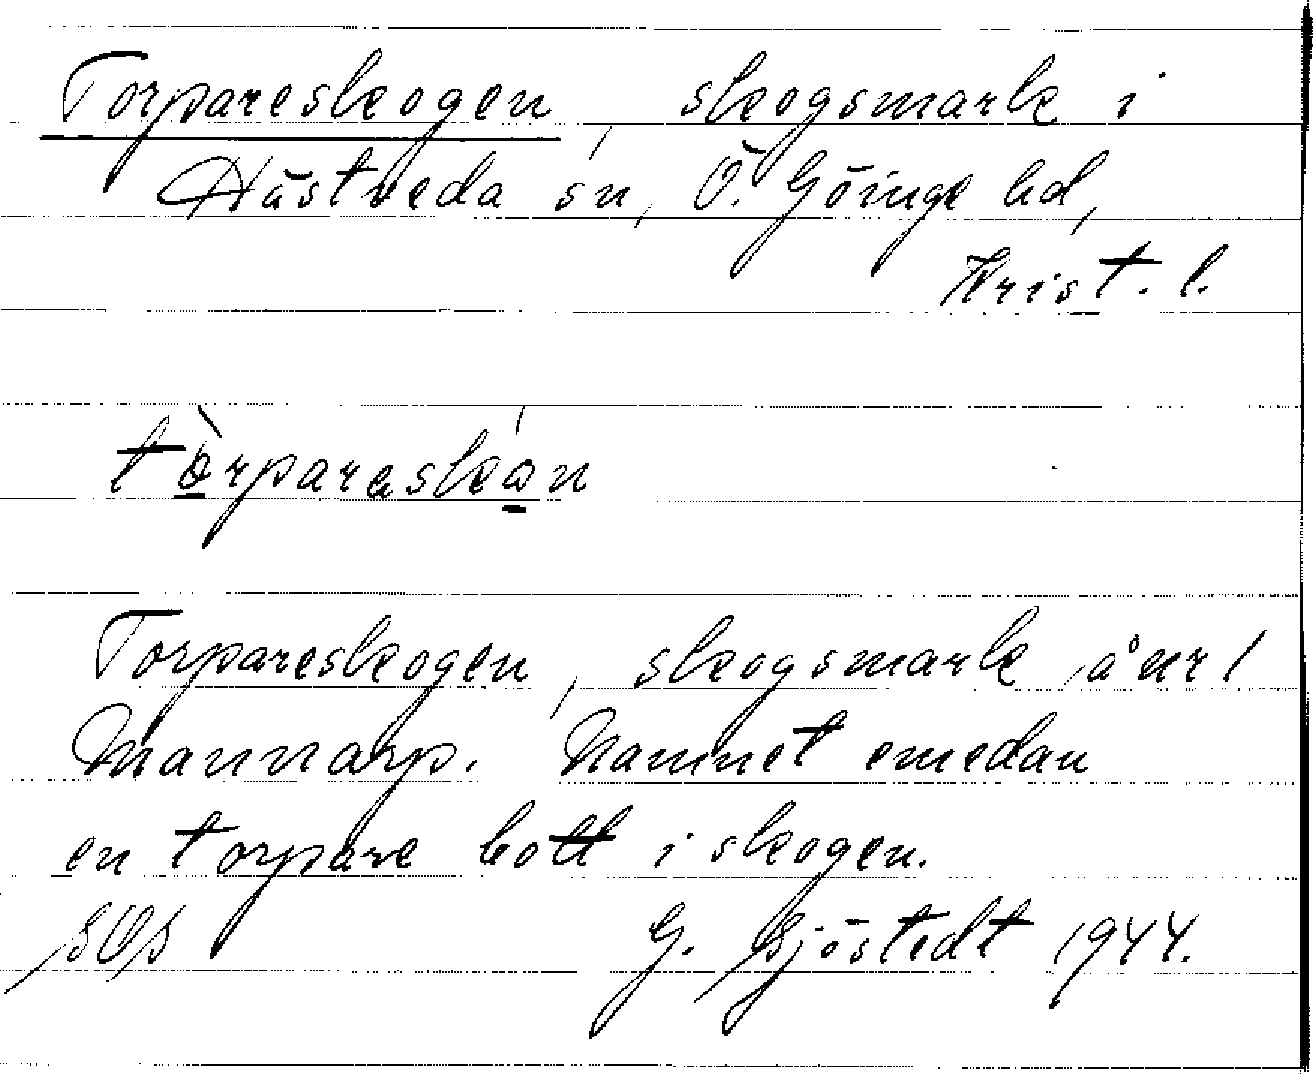 Torpareskogen, skogsmark i
Hästveda sn, Ö. Göinge hd,
Krist. l.
tò̠rparaskó̠n
Torpareskogen, skogsmark å nr 1
Mannarp. Namnet emedan
en torpare bott i skogen.
G. Sjöstedt 1944.